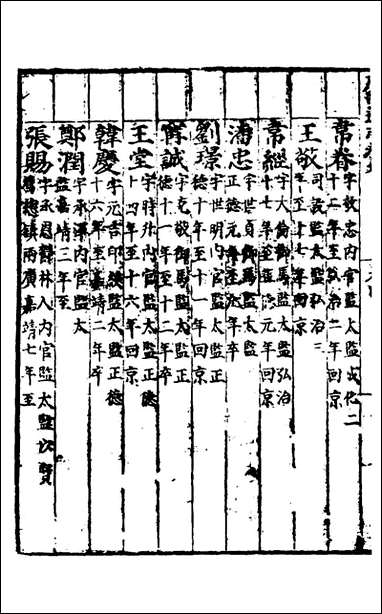 常春 字敦忠内官監太監成化二
十二年至弘治二年回京
王敬 司設監太監弘治三
年至十七年回京
常經 字大倫御馬監太監弘治
十七年至正德元年回京
潘忠 字世貞御馬監太監
正德元年至 年卒
劉璟 字世明内官監太監正
德十年至十一年回京
甯誠 字克敬御馬監太監正
德十一年至十二年卒
王堂 字時升内官監太監正德
十四年至十六年回京
韓慶 字元吉印綬監太監正德
十六年至嘉靖二年卒
鄭潤 字承澤内官監太
監嘉靖三年至
張賜 字承恩 林人内官監太監以賢
舊總鎮兩廣嘉靖七年至